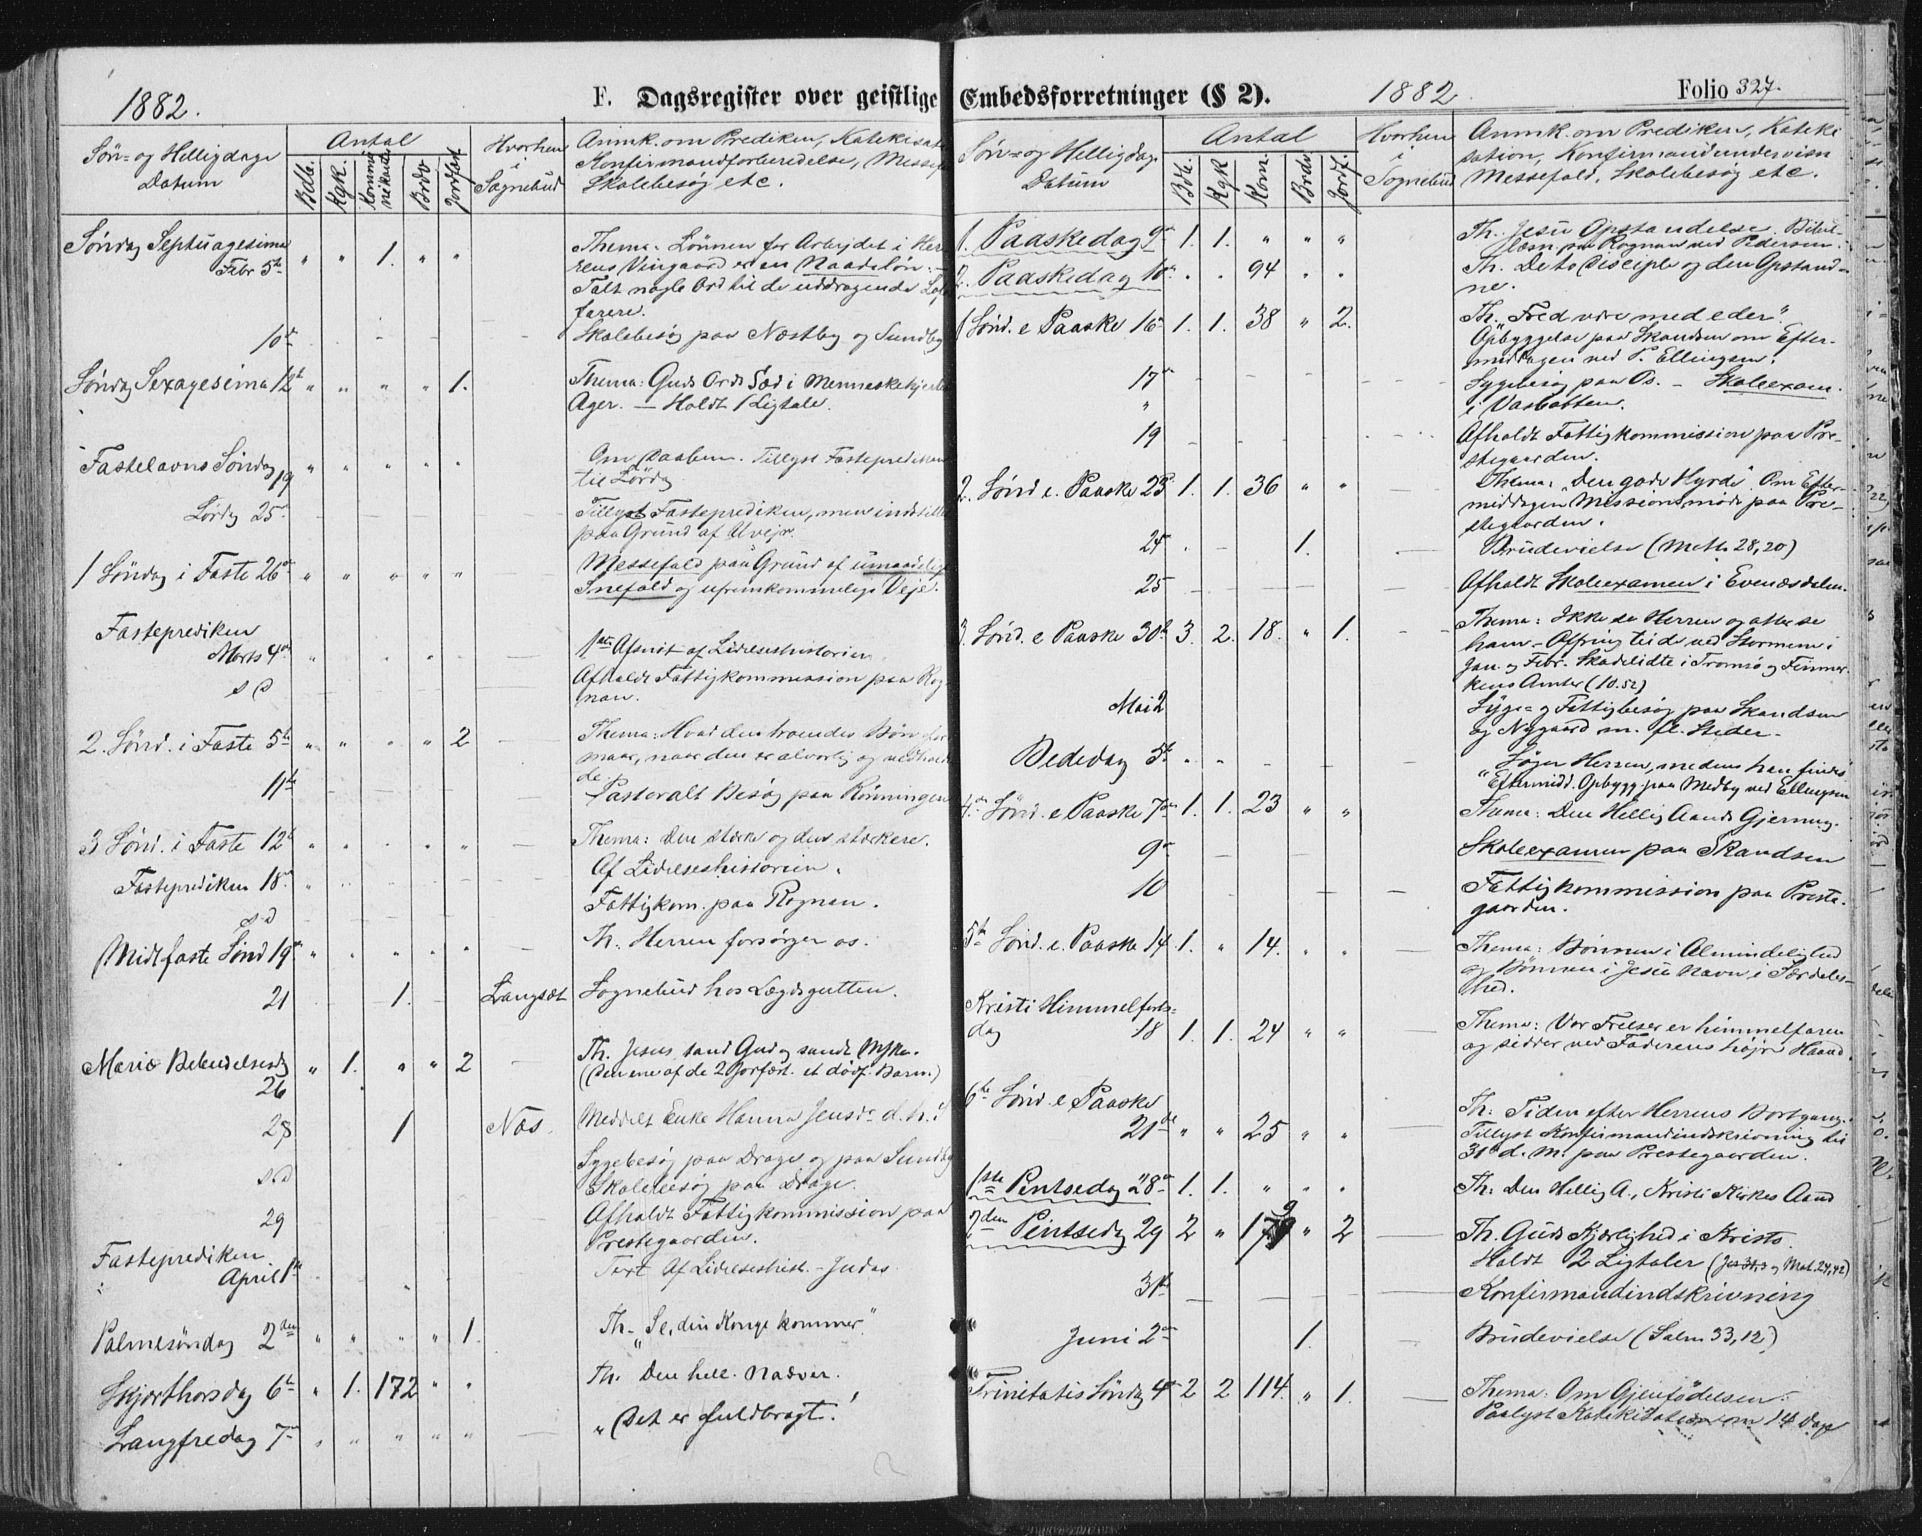 1882.
F. Dagsregister over geistlige Embedsforretninger (§ 2).
1882
Folio 327.
Søn- og Helligdage
Datum
Antal
Bdb.
Kgk.
Kommu
nikanter
Brdv
Jordfst.
Hvorhen
i
Sognebud
Anmk. om Prediken, Katekisat
Konfirmandforberedelse, Messef
Skolebesøg etc.
Søndag Septuagesima
Febr 5te " " 1. " "
Thema: Lönnen for Arbejdet i Her
rens Vingaard er en Naadelön. —
Talt nogle Ord til de uddragende Lof
farere.
10de
Skolebesøg paa Næstby og Sundby
Søndag Sexagesima 12te " " " " 1.
Thema: Guds Ords Sæd i Menneskehjertets
Ager. — Holdt 1 Ligtale.
Fastelavns Søndag 19 " " " " "
Om Daaben. Tillyst Fasteprediken
til Lørdag
Lørdag 25de
Tillyst Fasteprediken, men indstillet
paa Grund af Uvejr.
1 Søndag i Faste 26de " " " " "
Messefald paa Grund af umaadeligt
Snefald og ufremkommelige Veje.
Fasteprediken
Marts 4de
1ste Afsnit af Lidelseshistorien
s d
Afholdt Fattigkommission paa Rog
nan.
2. Sønd. i Faste 5te " " " " 2
Thema: Hvad den troendes Bøn for
maar, naar den er alvorlig og vedhol
de
11te
Pastoralt Besøg paa Rønningen
3 Sønd. i Faste 12te " " " " "
Thema: Den stærke og den stærkere.
Fasteprediken 18de "
Af Lidelseshistorien.
s d
Fattigkom. paa Rognan.
Midtfaste Sønd 19de " " " " "
Th. Herren forsørger os.
21 1. Langsæt
Sognebud hos Lægdsgutten.
Mariæ Bebudelsesdag
26 " 1. " " 2
Th. Jesus, sand Gud og sandt Mske.
(Den ene af de 2 Jorfæst. et dødf. Barn.)
28 1 Næs.
Meddelt Enke Hanna Jensdr d. h. N
s d
Sygebesøg paa Drage og paa Sundby
Skolebesøg paa Drage.
29
Afholdt Fattigkommission paa
Prestegaarden.
Fasteprediken
April 1ste
Text Af Lidelseshist. - Judas.
Palmesøndag 2den " " " " 1.
Th. "Se, din Konge kommer".
Skjærthorsdag 6te " 1. 172 " "
Th. Den hell. Nadver.
Langfredag 7de " " " " "
"Det er fuldbragt!
Søn- og Helligdage
Datum
Antal
Bdb.
Kgk
Kom.
Brdv
Jordf.
Hvorhen
i
Sognebud
Anmk. om Prediken, Kateki
sation, Konfirmandundervisn
Messefald, Skolebesøg etc.
1. Paaskedag 9de 1. 1. " " "
Th. Jesu Opstandelse. Bibel
læsn. paa Rognan ved Pedersen.
2. Paaskedag 10de " " 94 " "
Th. De to Disciple og den Opstand-
ne.
1 Sønd. e. Paaske 16de 1. 1. 38 " 2.
Th. "Fred være med eder"
Opbyggelse paa Skandsen om Efter-
middagen ved P. Ellingsen.
17de
Sygebesøg paa Os. — Skoleexam.
"
i Vasbotten.
19
Afholdt Fattigkommission paa Pre-
stegaarden.
2. Sønd. e. Paaske 23de 1. 1. 36 " "
Thema: "Den gode Hyrde". Om Efter-
middagen Missionsmøde paa Pre-
stegaarden.
24 1.
Brudevielse (Math. 28,20)
25
Afholdt Skoleexamen i Evenæsdalen.
3. Sønd. e Paaske 30te 3. 2. 18. " 1.
Thema: Ikke se Herren og atter se
ham — Offring til de ved Stormen i
Jan. og Febr. Skadelidte i Tromsø og Finmar
kens Amter (10.52)
Mai 2
Syge- og Fattigbesøg paa Skandsen
og Nygaard m. fl. Steder.
Bededag 5te
Søger Herren, medens han findes
"Eftermidd. Opbygg. paa Medby ved Ellingsen
4de Sønd. e Paaske 7de 1. 1. 23 " "
Thema: Den Hellig Aands Gjerning.
9de
Skoleexamen paa Skandsen
10
Fattigkommission paa Preste-
gaarden.
5te Sønd. e. Paaske 14 1. " 14. " "
Thema: Bönnen i Almindelighed
og Bönnen i Jesu Navn i Særdeles-
hed.
Kristi Himmelfarts-
dag 18 1. 1. 24 " "
Thema: Vor Frelser er himmelfaren
og sidder ved Faderens højre Haand.
6te Sønd. e Paaske
21de " " 25 " "
Th: Tiden efter Herrens Bortgang.
Tillyst Konfirmandindskrivning til
31te d. M. paa Prestegaarden.
1ste Pentsedag 28de 1. 1. " " "
Th: Den Hellig A., Kristi Kirkes Aand
2den Pentsedg 29 2 " 179 " 2
Th. Guds Kjærlighed i Kristo.
Holdt 2 Ligtaler (Jes 31,3 og Mat. 24,42)
31te
Konfirmandindskrivning
Juni 2de 1.
Brudevielse (Salm 33,12)
Trinitatis Søndg 4de 2 2 114. " 1.
Thema: Om Gjenfødelsen.
Paalyst Katekisation om 14 Dage